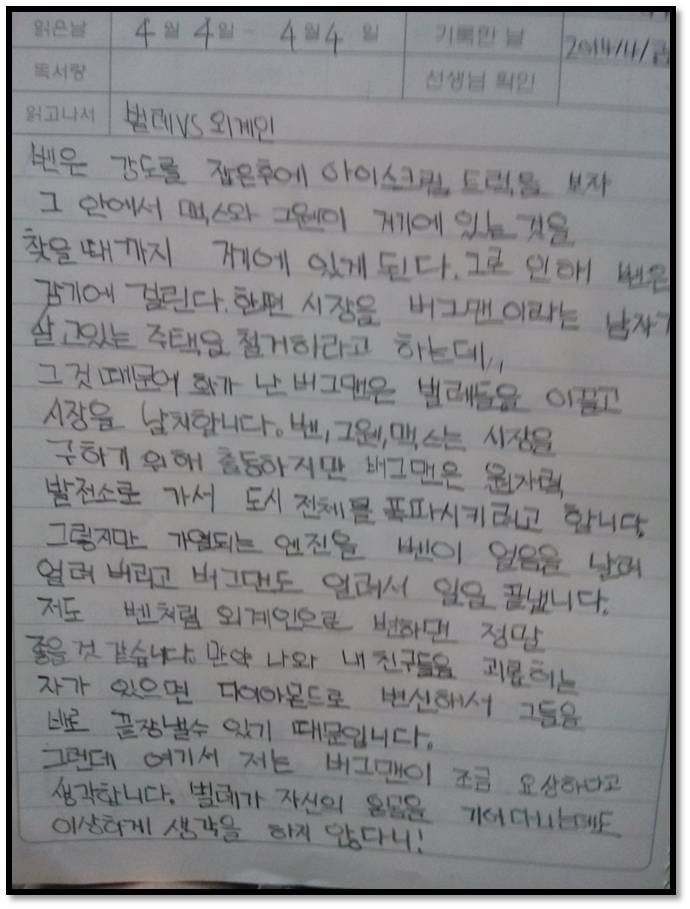 읽은날 4월 4일 - 4월 4일 기록한 날 2014/4/금
독서량 선생님 확인
읽고나서 벌레VS외계인
벤은 강도를 잡은후에 아이스크림 트럭을 보자
그 안에서 맥스와 그웬이 거기에 있는 것을
찾을때까지 거기에 있게 된다. 그로 인해 벤은
감기에 걸린다. 한편 시장을 버그맨이라는 남자가
살고있는 주택을 철거하라고 하는데,,
그것 때문에 화가 난 버그맨은 벌레들을 이끌고
시장을 납치합니다. 벤,그웬,맥스는 시장을
구하기 위해 출동하지만 버그맨은 원자력
발전소로 가서 도시 전체를 폭파시키려고 합니다.
그렇지만 가열되는 엔진을 벤이 얼음을 날려
얼려 버리고 버그맨도 얼려서 일을 끝냅니다.
저도 벤처럼 외계인으로 변하면 정말
좋을 것 같습니다. 만약 나와 내 친구들을 괴롭히는
자가 있으면 다이아몬드로 변신해서 그들을
바로 끝장낼수 있기 때문입니다.
그런데 여기서 저는 버그맨이 조금 요상하다고
생각합니다. 벌레가 자신의 몸을 기어다니는데도
이상하게 생각을 하지 않다니!